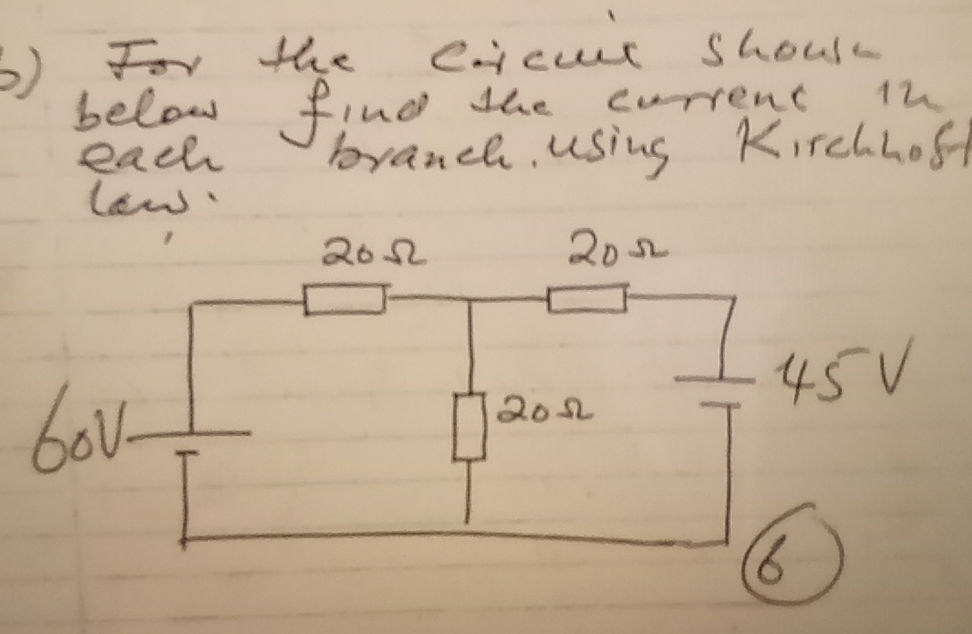 b) For the circuit shown
below find the current in
each branch. using Kirchhoff
law.
20Ω 20Ω
45V
20Ω
60V
6